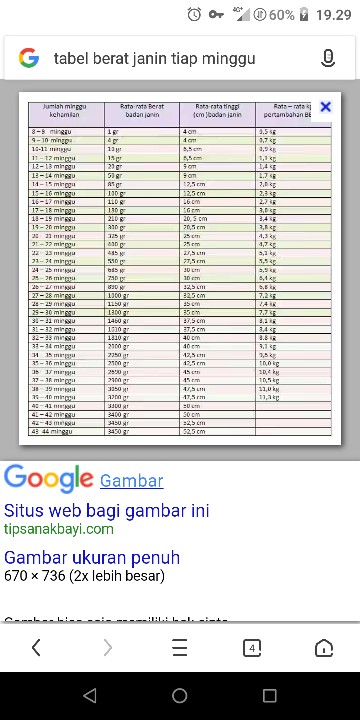 4G+ 60% 19.29
G tabel berat janin tiap minggu
Jumlah minggu kehamilan Rata-rata Berat badan janin Rata-rata tinggi (cm) badan janin Rata – rata kg pertambahan BB
8 – 9 minggu 1 gr 4 cm 0,5 kg
9 – 10 minggu 4 gr 4 cm 0,7 kg
10-11 minggu 10 gr 6,5 cm 0,9 kg
11 – 12 minggu 15 gr 6,5 cm 1,1 kg
12 – 13 minggu 20 gr 9 cm 1,4 kg
13 – 14 minggu 50 gr 9 cm 1,7 kg
14 – 15 minggu 85 gr 12,5 cm 2,0 kg
15 – 16 minggu 100 gr 12,5 cm 2,3 kg
16 – 17 minggu 110 gr 16 cm 2,7 kg
17 – 18 minggu 180 gr 16 cm 3,0 kg
18 – 19 minggu 210 gr 20, 5 cm 3,4 kg
19 – 20 minggu 300 gr 20,5 cm 3,8 kg
20 21 minggu 325 gr 25 cm 4,3 kg
21 – 22 minggu 400 gr 25 cm 4,7 kg
22 23 minggu 485 gr 27,5 cm 5,1 kg
23 – 24 minggu 550 gr 27,5 cm 5,5 kg
24 – 25 minggu 685 gr 30 cm 5,9 kg
25 – 26 minggu 750 gr 30 cm 6,4 kg
26 – 27 minggu 890 gr 32,5 cm 6,8 kg
27 – 28 minggu 1000 gr 32,5 cm 7,2 kg
28 – 29 minggu 1150 gr 35 cm 7,4 kg
29 – 30 minggu 1300 gr 35 cm 7,7 kg
30 – 31 minggu 1460 gr 37,5 cm 8,1 kg
31 – 32 minggu 1610 gr 37,5 cm 8,4 kg
32 – 33 minggu 1810 gr 40 cm 8,8 kg
33 – 34 minggu 2000 gr 40 cm 9,1 kg
34 35 minggu 2250 gr 42,5 cm 9,5 kg
35 – 36 minggu 2500 gr 42,5 cm 10,0 kg
36 37 minggu 2690 gr 45 cm 10,4 kg
37 – 38 minggu 2900 gr 45 cm 10,5 kg
38 39 minggu 3050 gr 47,5 cm 11,0 kg
39 – 40 minggu 3200 gr 47,5 cm 11,3 kg
40 – 41 minggu 3300 gr 50 cm
41 – 42 minggu 3400 gr 50 cm
42 – 43 minggu 3450 gr 52,5 cm
43 44 minggu 3450 gr 52,5 cm
Google Gambar
Situs web bagi gambar ini
tipsanakbayi.com
Gambar ukuran penuh
670 × 736 (2x lebih besar)
4